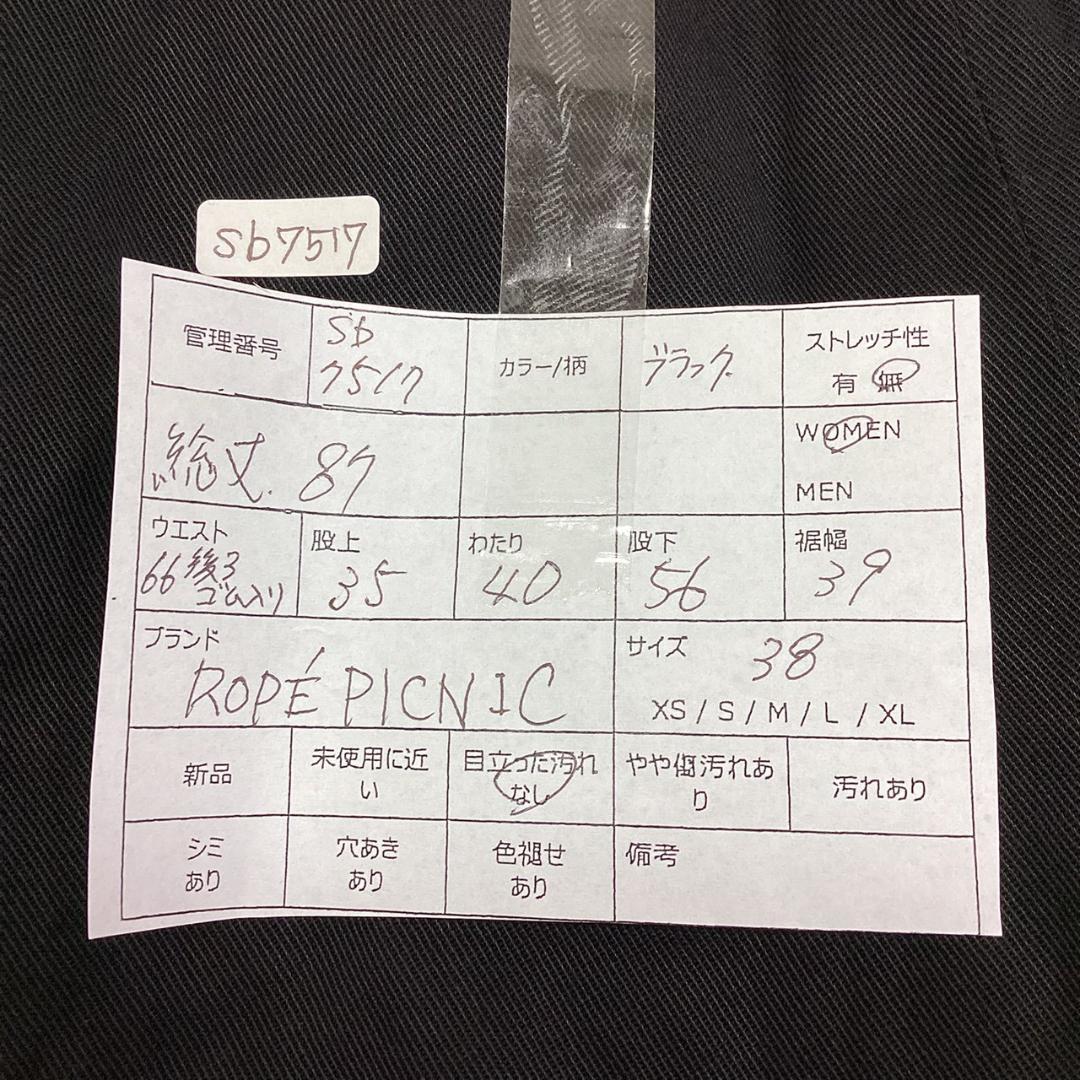 sb7517
管理番号
sb
7517
カラー/柄
ブラック
ストレッチ性
有 無
総丈 87
WOMEN
MEN
ウエスト
66 後ろ
ゴム入り
股上
35
わたり
40
股下
56
裾幅
39
ブランド
ROPÉ PICNIC
サイズ
38
XS / S / M / L / XL
新品
未使用に近
い
目立った汚れ
なし
やや傷汚れあ
り
汚れあり
シミ
あり
穴あき
あり
色褪せ
あり
備考